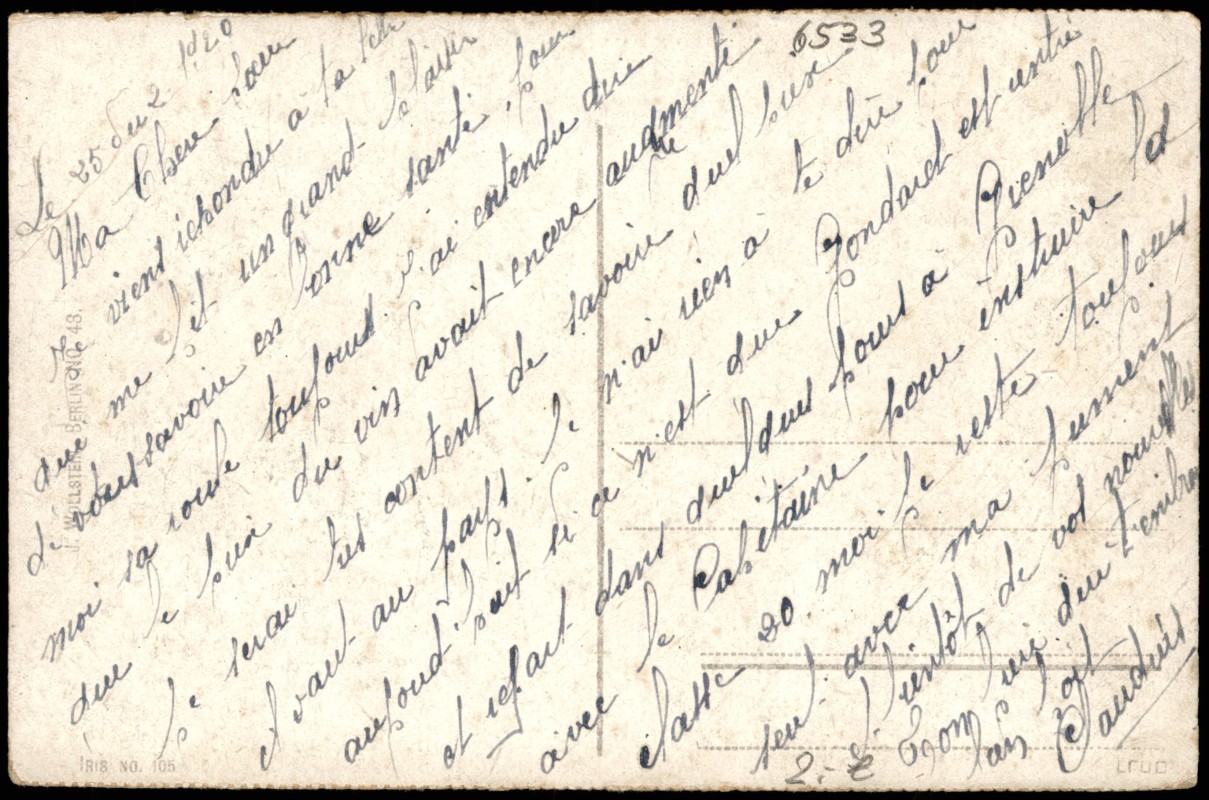 6533
Le 25 du 2 1920
Ma Chere Sœur
Je vient repondre a ta
que me fit un grand plaisir
de vous savoire en bonne santé pour
moi sa roule toujours. J'ai entendu dire
que le prix du vin avait encore augmenté
Je serai tres content de savoire quel prix
il vaut au pays. Je n'ai rien a te dire pour
aujourd'hui si ce n'est que Gondaret est entré
et repart dans quelques jours a Grenoble
avec le Capitaine pour instruire la
classe 20. moi je reste toujours
seul avec ma jument.
A bientôt de vos nouvelles
Ton frere qui t'embrasse
J. WOLLSTEIN BERLIN NO. 43.
IRIS NO. 105